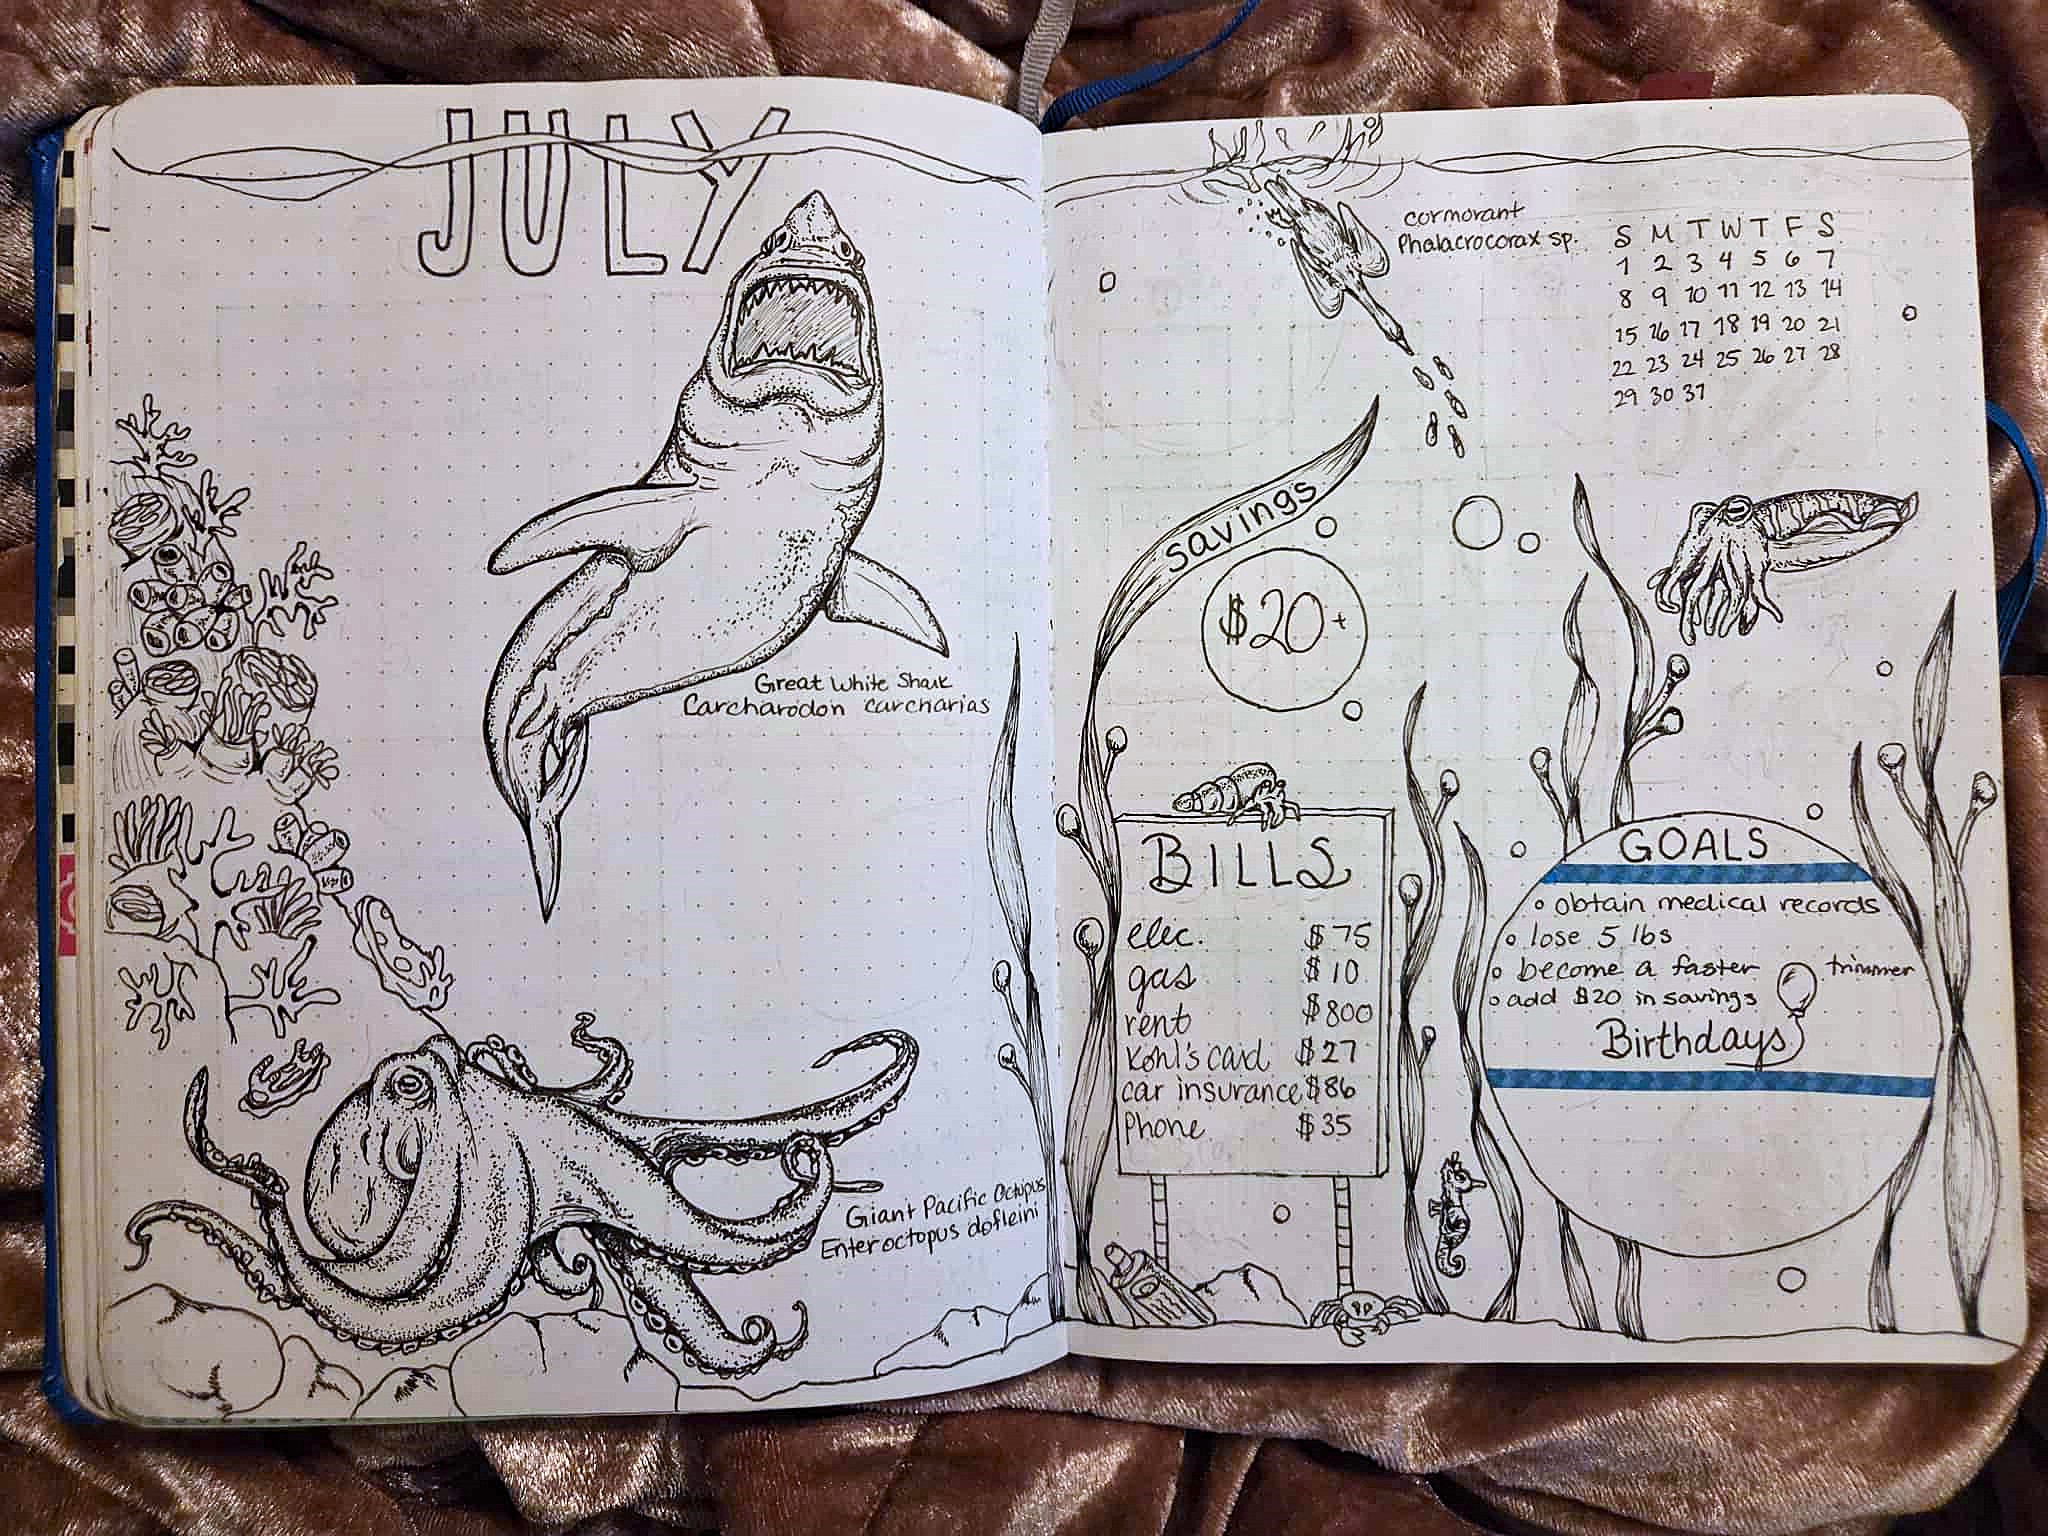 JULY
Great White Shark
Carcharodon carcharias
Giant Pacific Octopus
Enteroctopus dofleini
cormorant
Phalacrocorax sp.
S M T W T F S
1 2 3 4 5 6 7
8 9 10 11 12 13 14
15 16 17 18 19 20 21
22 23 24 25 26 27 28
29 30 31
savings
$20+
BILLS
elec. $75
gas $10
rent $800
Kohl's card $27
car insurance $86
Phone $35
GOALS
obtain medical records
lose 5 lbs
become a faster trimmer
add $20 in savings
Birthdays